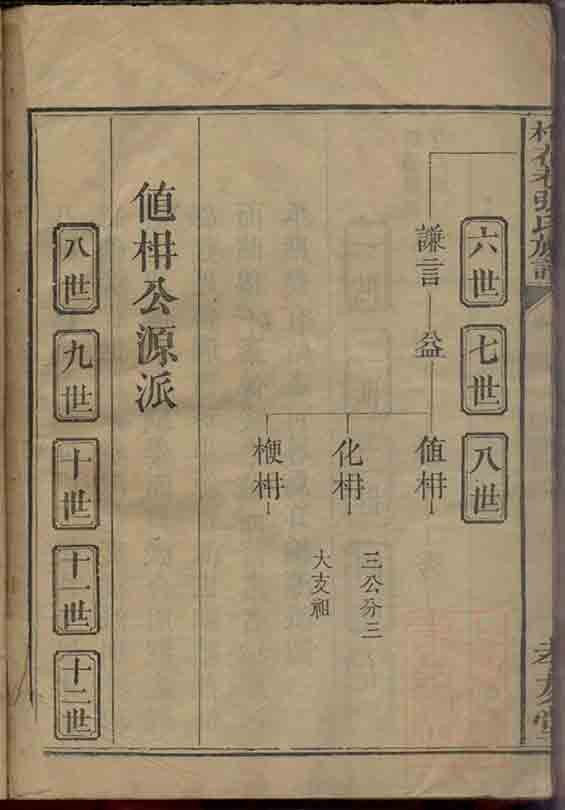 張氏族譜
孝友堂
六世
七世
八世
謙言
益
値枏
化枏
楩枏
三公分三
大支祖
値枏公源派
八世
九世
十世
十一世
十二世